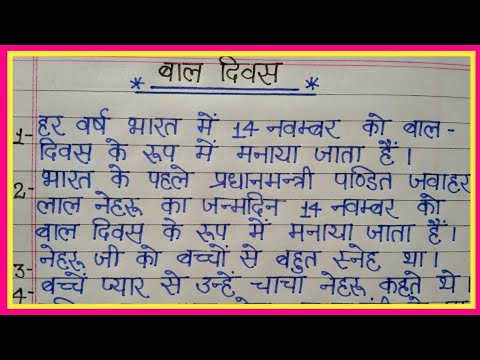 * बाल दिवस *
1- हर वर्ष भारत में 14 नवम्बर को बाल -
दिवस के रूप में मनाया जाता हैं।
2- भारत के पहले प्रधानमन्त्री पण्डित जवाहर
लाल नेहरू का जन्मदिन 14 नवम्बर को
बाल दिवस के रूप में मनाया जाता हैं।
3- नेहरू जी को बच्चों से बहुत स्नेह था।
4- बच्चें प्यार से उन्हें चाचा नेहरू कहते थे।